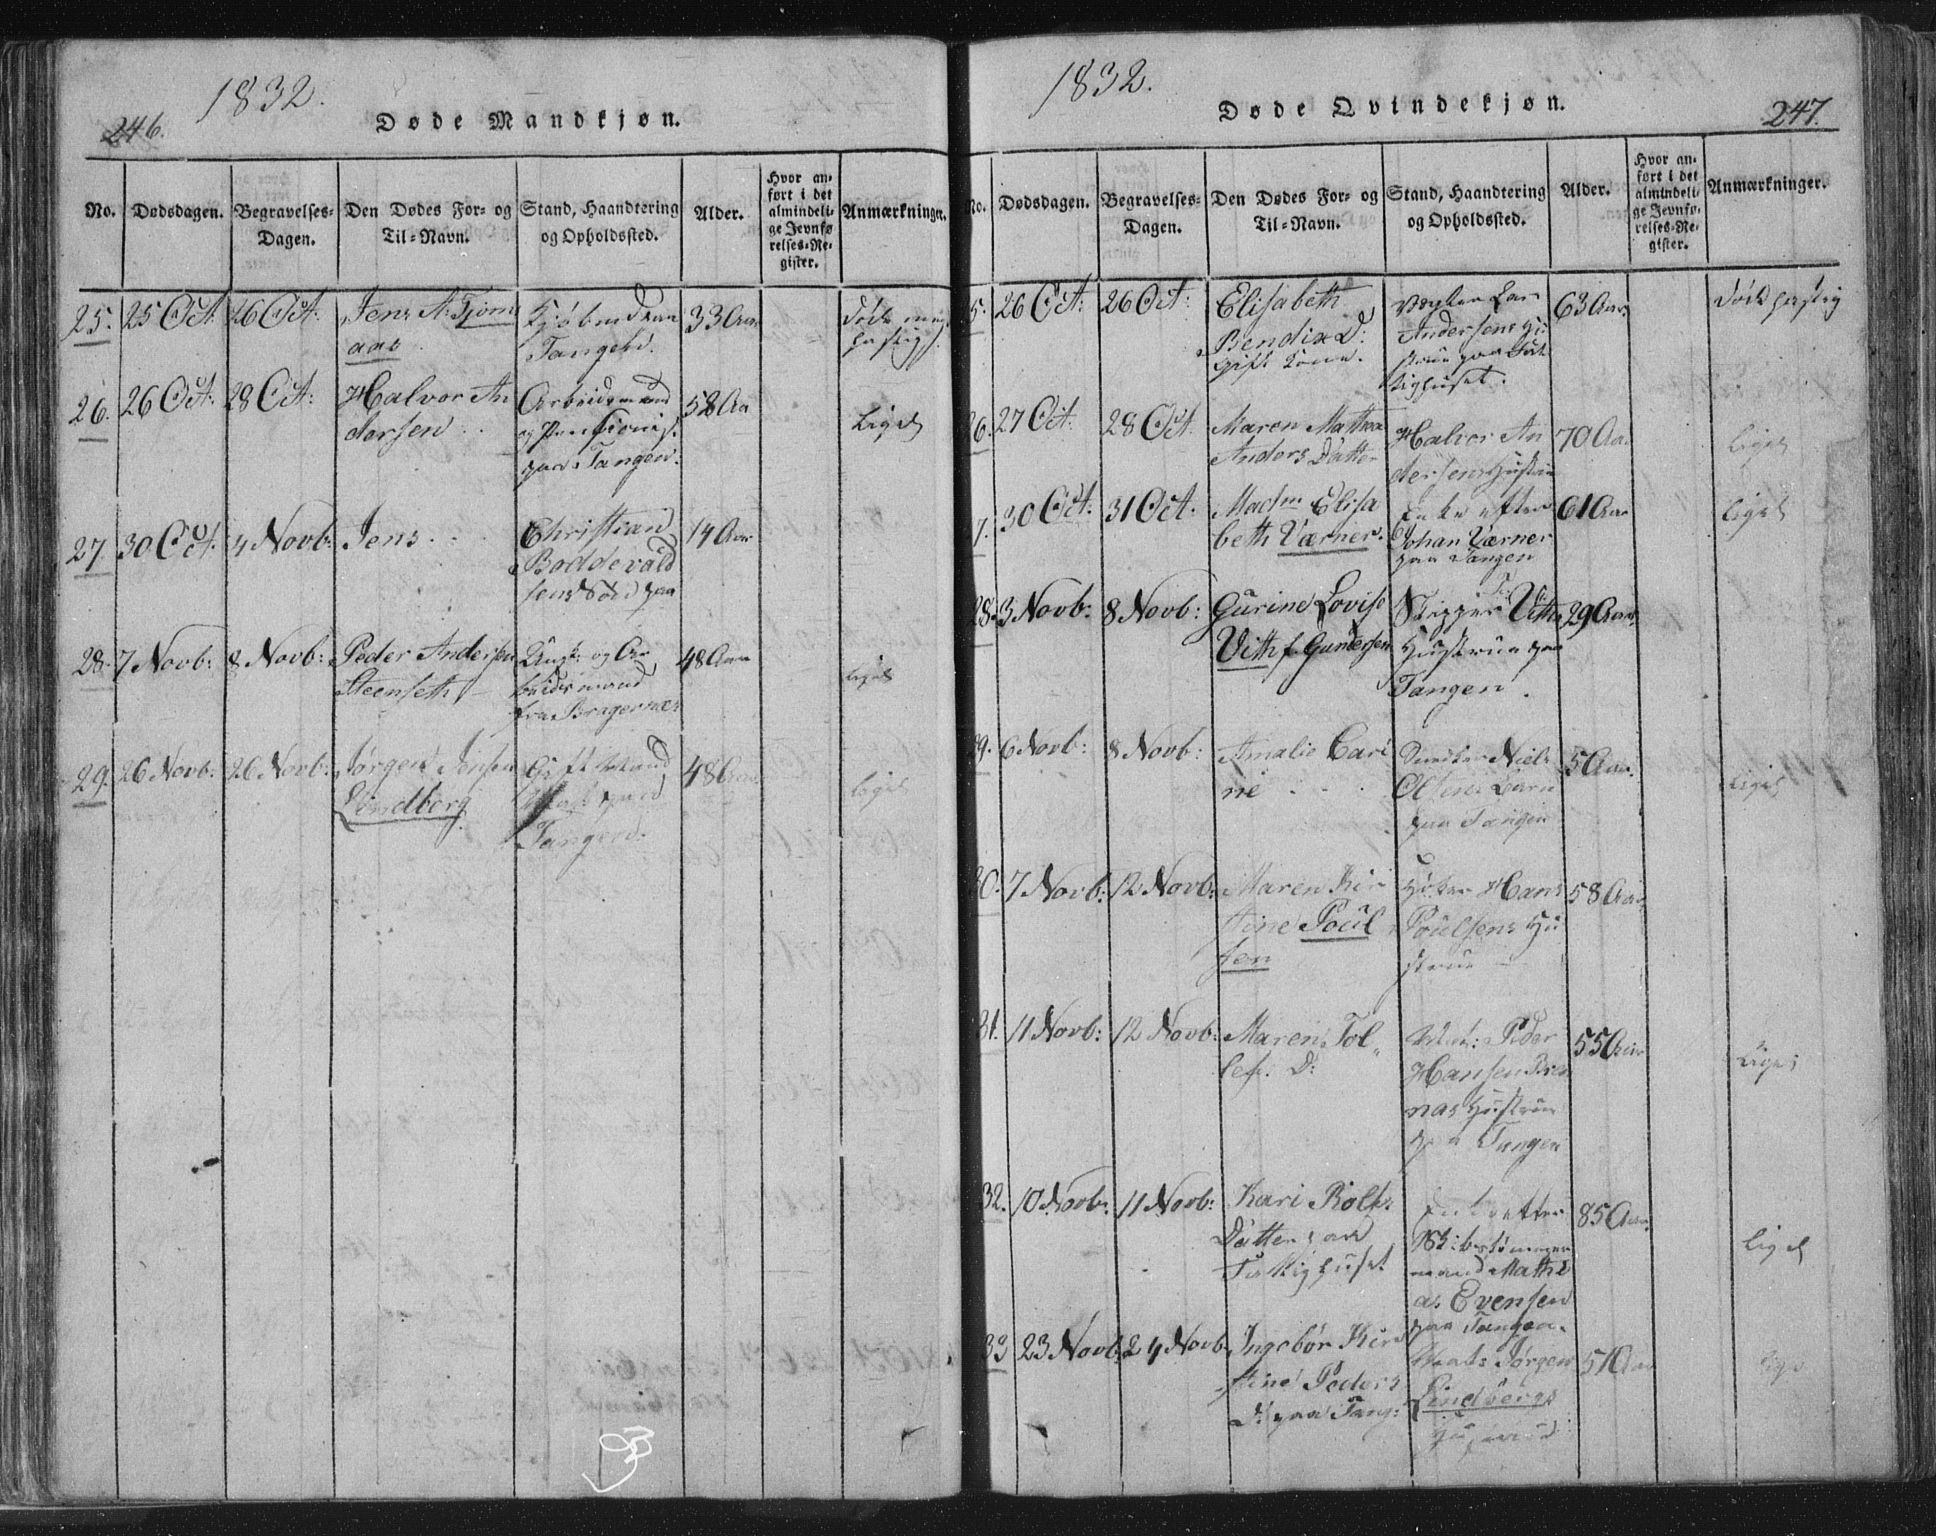 246.
1832.
Døde Mandkjøn.
No.
Dødsdagen.
Begravelses-
Dagen.
Den Dødes For- og
Til-Navn.
Stand, Haandtering
og Opholdssted.
Alder.
Hvor an-
ført i det
almindeli-
ge Jevnfø
relses-Re-
gister.
Anmærkninger.
25.
25 Oct.
26 Oct:
Jens A. Tjom
aas
Tangen.
33 Aar
Døde
26.
26 Oct.
28 Oct:
Halvor An
dersen
Arbeidsmand
og
paa Tangen.
58 Aa
Ligel
27
30 Oct.
4 Novb:
Jens
Christian
Boddevald
sens Søn paa
14 Aar
28.
7 Novb:
8 Novb:
Peder Andersen
Steenseth
og Ar
beidsmand
fra Bragernæs
48 Aar
Ligel
29.
26 Novb:
26 Novb:
Jørgen Jensen
Lindberg
Gift Mand
paa
Tangen.
48 Aar
Ligel
1832.
Døde Qvindekjøn.
247.
No.
Dødsdagen.
Begravelses-
Dagen.
Den Dødes For- og
Til-Navn.
Stand, Haandtering
og Opholdssted.
Alder.
Hvor an-
ført i det
almindeli-
ge Jevnfø-
relses-Re-
gister.
Anmærkninger.
5.
26 Oct:
26 Oct:
Elisabeth
Bendix D:
gift Kone.
Vægter Lar
Andersens Hu
strue paa Fat
tighuset.
63 Aar
Døde hastig
6.
27 Oct.
28 Oct.
Maren Mathea
Anders Datter
Halvor An
dersens Hustrue
70 Aa.
Ligel
7.
30 Oct.
31 Oct.
Madm Elisa
beth Værner.
Enke efter
Johan Værner
paa Tangen
61 Aar
Ligel
28.
3 Novb:
8 Novb:
Gurine Lovise
Vith f. Gundersen
Skipper Viths
Hustrue paa
Tangen.
29 Aar.
29.
6 Novb:
8 Novb:
Amalie Cari
ne
Niels
Olsens Barn
paa Tangen
5 Aar.
Ligel
30.
7 Novb:
12 Novb:
Maren Kir
stine Poul
sen
Høker Hans
Poulsens Hu
strue
58 Aar
31.
11 Novb:
12 Novb:
Maren Tol
lefs. D:
Peder
Hansen Bre
nas Hustrue
paa Tangen
55 Aar
Ligel
32.
10 Novb:
11 Novb:
Kari Rolfs
Datter paa
Fattighuset
Enke efter
Skibstømmer
mand Mathi
as Evensen
paa Tangen.
85 Aar.
Ligel
33
23 Novb.
24 Novb.
Ingebør Kir
stine Peders
D: paa Tang:
Jørgen
Lindbergs
51 Aar
Lige